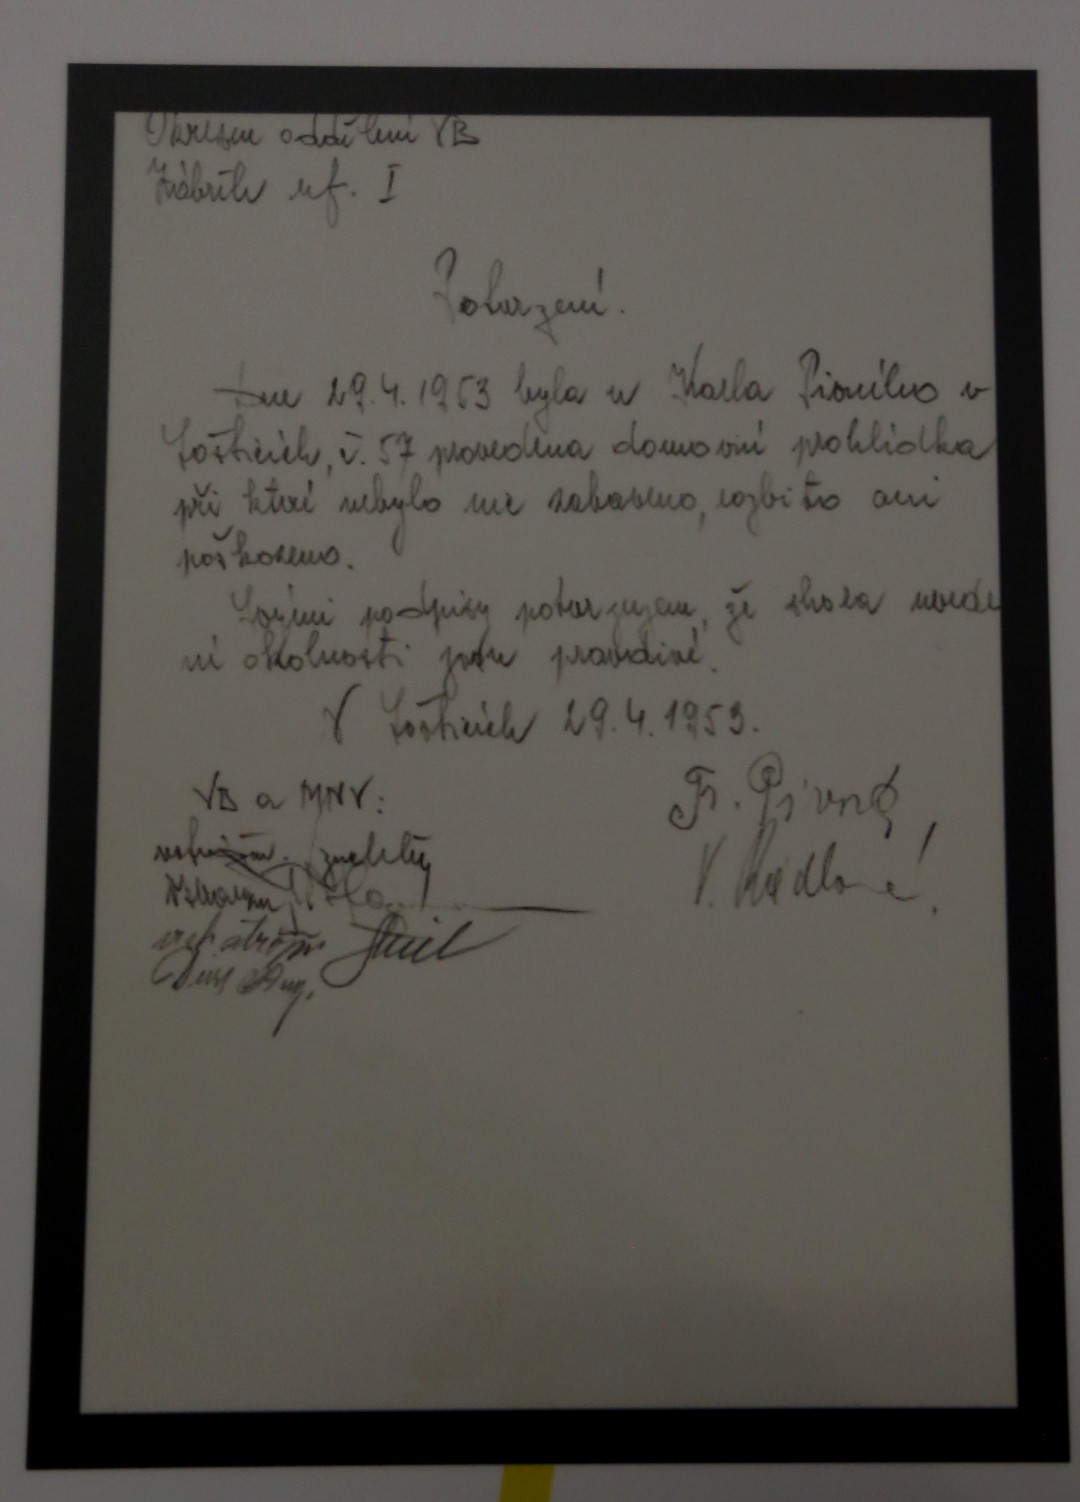 Okresní oddělení VB
Zábřeh ref. I
Potvrzení.
Dne 29.4.1953 byla u Karla Pivného v
Lošticích, č. 57 provedena domovní prohlídka
při které nebylo nic zabaveno, rozbito ani
poškozeno.
Svými podpisy potvrzujem, že shora uvede
né okolnosti jsou pravdivé.
V Lošticích 29.4.1953.
VB a MNV:
Fr. Pivný
V.